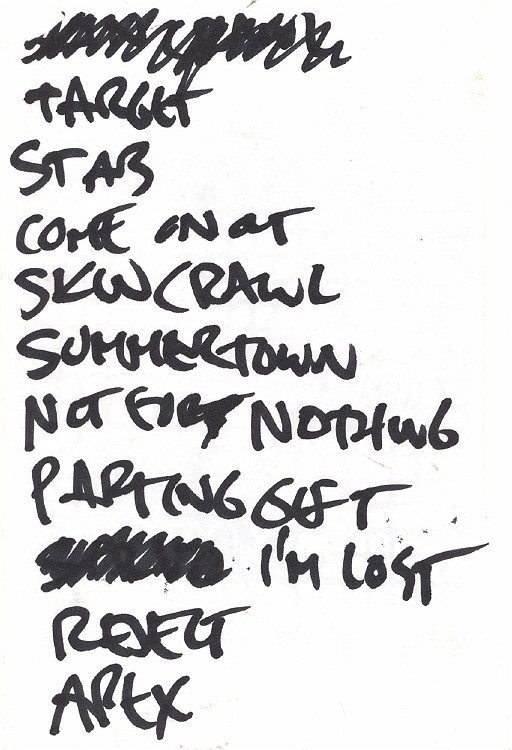 TARGET
STAB
COME ON OUT
SKIN CRAWL
SUMMERTOWN
NOT FOR NOTHING
PARTING GIFT
I'M LOST
REJECT
APEX